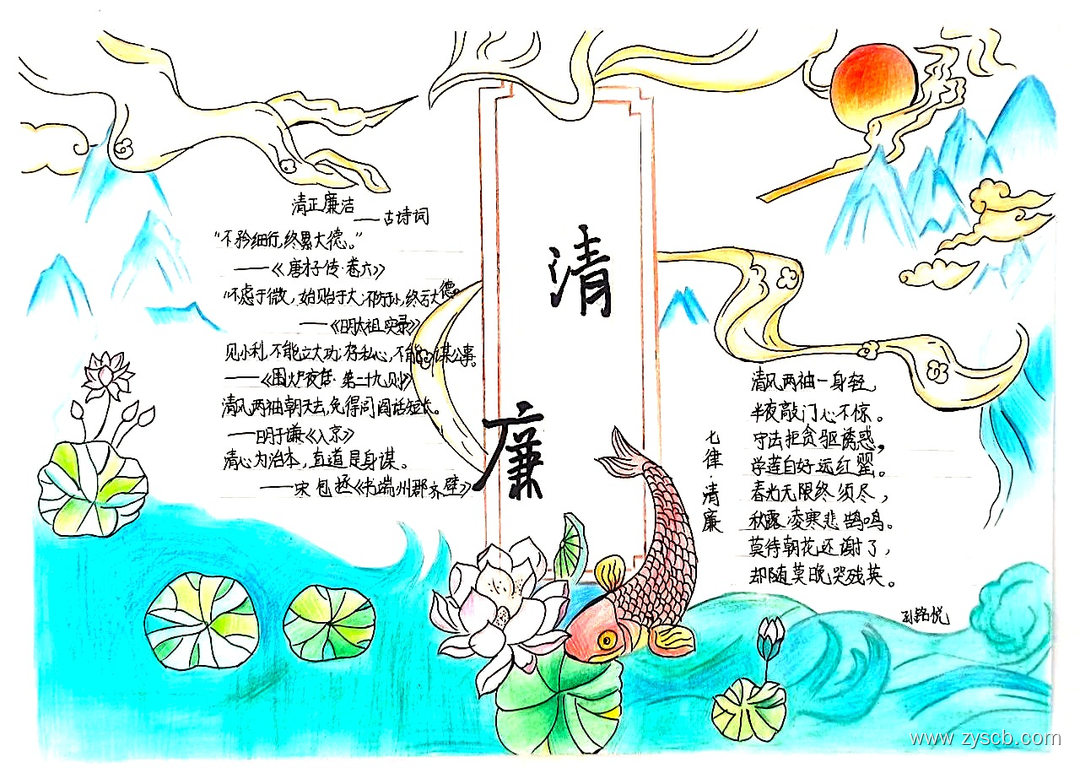 清正廉洁
——古诗词
"不矜细行,终累大德。"
——《唐才子传·卷六》
"不虑于微,始贻于大;不防于小,终亏大德。
——《明太祖实录》
见小利,不能立大功;存私心,不能谋公事。
——《围炉夜话·第二十九则》
清风两袖朝天去,免得闾阎话短长。
——明于谦《入京》
清心为治本,直道是身谋。
——宋 包拯《书端州郡斋壁》
清
廉
七律·清廉
清风两袖一身轻,
半夜敲门心不惊。
守法拒贪驱诱惑,
学莲自好远红罂。
春光无限终须尽,
秋露凌寒悲鹊鸣。
莫待朝花还谢了,
却随莫晚哭残英。
www.zyscb.com